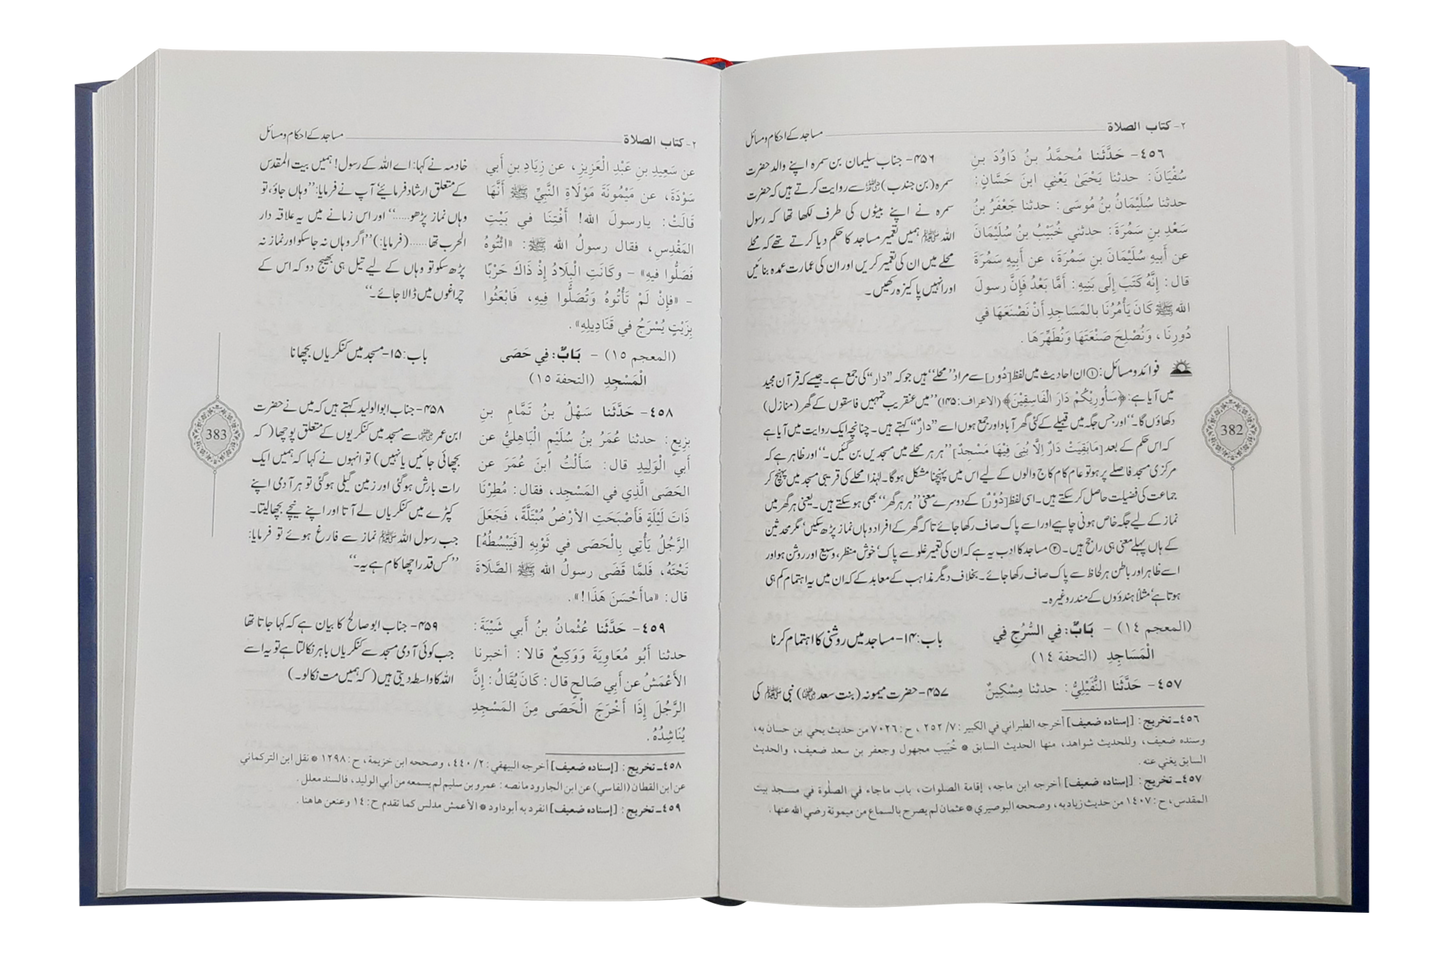 ٢- كتاب الصلاة
مساجد کے احکام ومسائل
٤٥٦- حَدَّثَنا مُحَمَّدُ بنُ دَاوُدَ بنِ
سُفْيَانَ: حدثنا يَحْيَىٰ يَعْني ابنَ حَسَّانٍ:
حدثنا سُلَيْمَانُ بنُ مُوسَى: حدثنا جَعْفَرُ بنُ
سَعْدِ بنِ سَمُرَةَ: حدثني خُبَيْبُ بنُ سُلَيْمَانَ
عن أبِيهِ سُلَيْمَانَ بنِ سَمُرَةَ، عن أبِيهِ سَمُرَةَ
قال: إنَّهُ كَتَبَ إلَى بَنِيهِ: أمَّا بَعْدُ فَإنَّ رسولَ
الله ﷺ كَانَ يَأْمُرُنَا بالمَسَاجِدِ أنْ نَصْنَعَهَا في
دُورِنَا، وَنُصْلِحَ صَنْعَتَهَا وَنُطَهِّرَهَا.
۴۵۶- جناب سلیمان بن سمرہ اپنے والد حضرت
سمرہ (بن جندب) ﷜ سے روایت کرتے ہیں کہ حضرت
سمرہ نے اپنے بیٹوں کی طرف لکھا تھا کہ رسول
اللہ ﷺ ہمیں تعمیر مساجد کا حکم دیا کرتے تھے کہ محلے
محلے میں ان کی تعمیر کریں اور ان کی عمارت عمدہ بنائیں
اور انہیں پاکیزہ رکھیں۔
فوائد ومسائل: ① ان احادیث میں لفظ [دُور] سے مراد ”محلے“ ہیں جو کہ ”دار“ کی جمع ہے۔ جیسے کہ قرآن مجید
میں آیا ہے: ﴿سَأُورِيكُمْ دَارَ الْفَاسِقِينَ﴾ (الاعراف:۱۴۵) ”میں عنقریب تمہیں فاسقوں کے گھر (منازل)
دکھاؤں گا۔“ اور جس جگہ میں قبیلے کے کئی گھر آباد اور جمع ہوں اسے ”دار“ کہتے ہیں۔ چنانچہ ایک روایت میں آیا ہے
کہ اس حکم کے بعد [مَا بَقِيَتْ دَارٌ إِلَّا بُنِيَ فِيهَا مَسْجِدٌ] ”ہر ہر محلے میں مسجدیں بن گئیں۔“ اور ظاہر ہے کہ
مرکزی مسجد فاصلے پر ہو تو عام کام کاج والوں کے لیے اس میں پہنچنا مشکل ہوگا۔ لہٰذا محلے کی قریبی مسجد میں پہنچ کر
جماعت کی فضیلت حاصل کر سکتے ہیں۔ اسی لفظ [دُوْرٌ] کے دوسرے معنی ”ہر ہر گھر“ بھی ہو سکتے ہیں۔ یعنی ہر گھر میں
نماز کے لیے جگہ خاص ہونی چاہیے اور اسے پاک صاف رکھا جائے تاکہ گھر کے افراد وہاں نماز پڑھ سکیں، مگر محدثین
کے ہاں پہلے معنی ہی راجح ہیں۔ ② مساجد کا ادب یہ ہے کہ ان کی تعمیر غلو سے پاک، خوش منظر، وسیع اور روشن ہو اور
اسے ظاہر اور باطن ہر لحاظ سے پاک صاف رکھا جائے۔ بخلاف دیگر مذاہب کے معابد کے کہ ان میں یہ اہتمام کم ہی
ہوتا ہے، مثلاً ہندؤوں کے مندر وغیرہ۔
(المعجم ١٤) - بَابٌ: فِي السُّرُجِ فِي
الْمَسَاجِدِ (التحفة ١٤)
باب:۱۴- مساجد میں روشنی کا اہتمام کرنا
٤٥٧- حَدَّثَنا النُّفَيْلِيُّ: حدثنا مِسْكِينٌ
۴۵۷- حضرت میمونہ (بنت سعد ﷞) نبی ﷺ کی
٤٥٦ـ تخريج: [إسناده ضعيف] أخرجه الطبراني في الكبير: ٧/ ٢٥٢، ح: ٧٠٢٦ من حديث يحيى بن حسان به،
وسنده ضعيف، وللحديث شواهد، منها الحديث السابق * خُبيب مجهول وجعفر بن سعد ضعيف، والحديث
السابق يغني عنه.
٤٥٧ـ تخريج: [إسناده ضعيف] أخرجه ابن ماجه، إقامة الصلوات، باب ماجاء في الصلٰوة في مسجد بيت
المقدس، ح: ١٤٠٧ من حديث زياد به، وصححه البوصيري * عثمان لم يصرح بالسماع من ميمونة رضي الله عنها.
382
٢- كتاب الصلاة
مساجد کے احکام ومسائل
عن سَعِيدِ بنِ عَبْدِ الْعَزِيزِ، عن زِيَادِ بنِ أبي
سَوْدَةَ، عن مَيْمُونَةَ مَوْلَاةِ النَّبيِّ ﷺ أنَّهَا
قَالَتْ: يارسولَ الله! أَفْتِنَا في بَيْتِ
المَقْدِسِ، فقال رسولُ الله ﷺ: «ائْتُوهُ
فَصَلُّوا فيهِ» - وكَانَتِ الْبِلَادُ إذْ ذَاكَ حَرْبًا
- «فإنْ لَمْ تَأْتُوهُ وَتُصَلُّوا فِيهِ، فَابْعَثُوا
بِزَيْتٍ يُسْرَجُ في قَنَادِيلِهِ».
خادمہ نے کہا: اے اللہ کے رسول! ہمیں بیت المقدس
کے متعلق ارشاد فرمائیے؟ آپ نے فرمایا: ”وہاں جاؤ، تو
وہاں نماز پڑھو.....“ اور اس زمانے میں یہ علاقہ دار
الحرب تھا ...... (فرمایا:) ”اگر وہاں نہ جا سکو اور نماز نہ
پڑھ سکو تو وہاں کے لیے تیل ہی بھیج دو کہ اس کے
چراغوں میں ڈالا جائے۔“
(المعجم ١٥) - بَابٌ: فِي حَصَى
الْمَسْجِدِ (التحفة ١٥)
باب:۱۵- مسجد میں کنکریاں بچھانا
٤٥٨- حَدَّثَنا سَهْلُ بنُ تَمَّامِ بنِ
بزِيعٍ: حدثنا عُمَرُ بنُ سُلَيْمٍ الْبَاهِليُّ عن
أبي الْوَلِيدِ قال: سَأَلْتُ ابنَ عُمَرَ عن
الحَصَى الَّذِي في المَسْجِدِ، فقال: مُطِرْنَا
ذَاتَ لَيْلَةٍ فَأَصْبَحَتِ الأَرْضُ مُبْتَلَّةً، فَجَعَلَ
الرَّجُلُ يَأْتِي بِالْحَصَى في ثَوْبِهِ [فَيَبْسُطُهُ]
تَحْتَهُ، فَلَمَّا قَضَى رسولُ الله ﷺ الصَّلَاةَ
قال: «ماأَحْسَنَ هَذَا!».
۴۵۸- جناب ابو الولید کہتے ہیں کہ میں نے حضرت
ابن عمر ﷠ سے مسجد میں کنکریوں کے متعلق پوچھا (کہ
بچھائی جائیں یا نہیں) تو انہوں نے کہا کہ ہمیں ایک
رات بارش ہو گئی اور زمین گیلی ہو گئی تو ہر آدمی اپنے
کپڑے میں کنکریاں لے آتا اور اپنے نیچے بچھا لیتا۔
جب رسول اللہ ﷺ نماز سے فارغ ہوئے تو فرمایا:
”کس قدر اچھا کام ہے یہ۔“
٤٥٩- حَدَّثَنا عُثْمانُ بنُ أبي شَيْبَةَ:
حدثنا أَبُو مُعَاوِيَةَ وَوَكِيعٌ قالا: أخبرنا
الأَعمَشُ عن أبي صَالحٍ قال: كَانَ يُقَالُ: إنَّ
الرَّجُلَ إِذَا أَخْرَجَ الْحَصَى مِنَ المَسْجِدِ
يُنَاشِدُهُ.
۴۵۹- جناب ابو صالح کا بیان ہے کہ کہا جاتا تھا
جب کوئی آدمی مسجد سے کنکریاں باہر نکالتا ہے تو یہ اسے
اللہ کا واسطہ دیتی ہیں (کہ ہمیں مت نکالو۔)
٤٥٨ـ تخريج: [إسناده ضعيف] أخرجه البيهقي: ٢/ ٤٤٠، وصححه ابن خزيمة، ح: ١٢٩٨ * نقل ابن التركماني
عن ابن القطان (الفاسي) عن ابن الجارود مانصه: عمرو بن سليم لم يسمعه من أبي الوليد، فالسند معلل.
٤٥٩ـ تخريج: [إسناده ضعيف] انفرد به أبوداود * الأعمش مدلس كما تقدم ح: ١٤ وعنعن هاهنا.
383